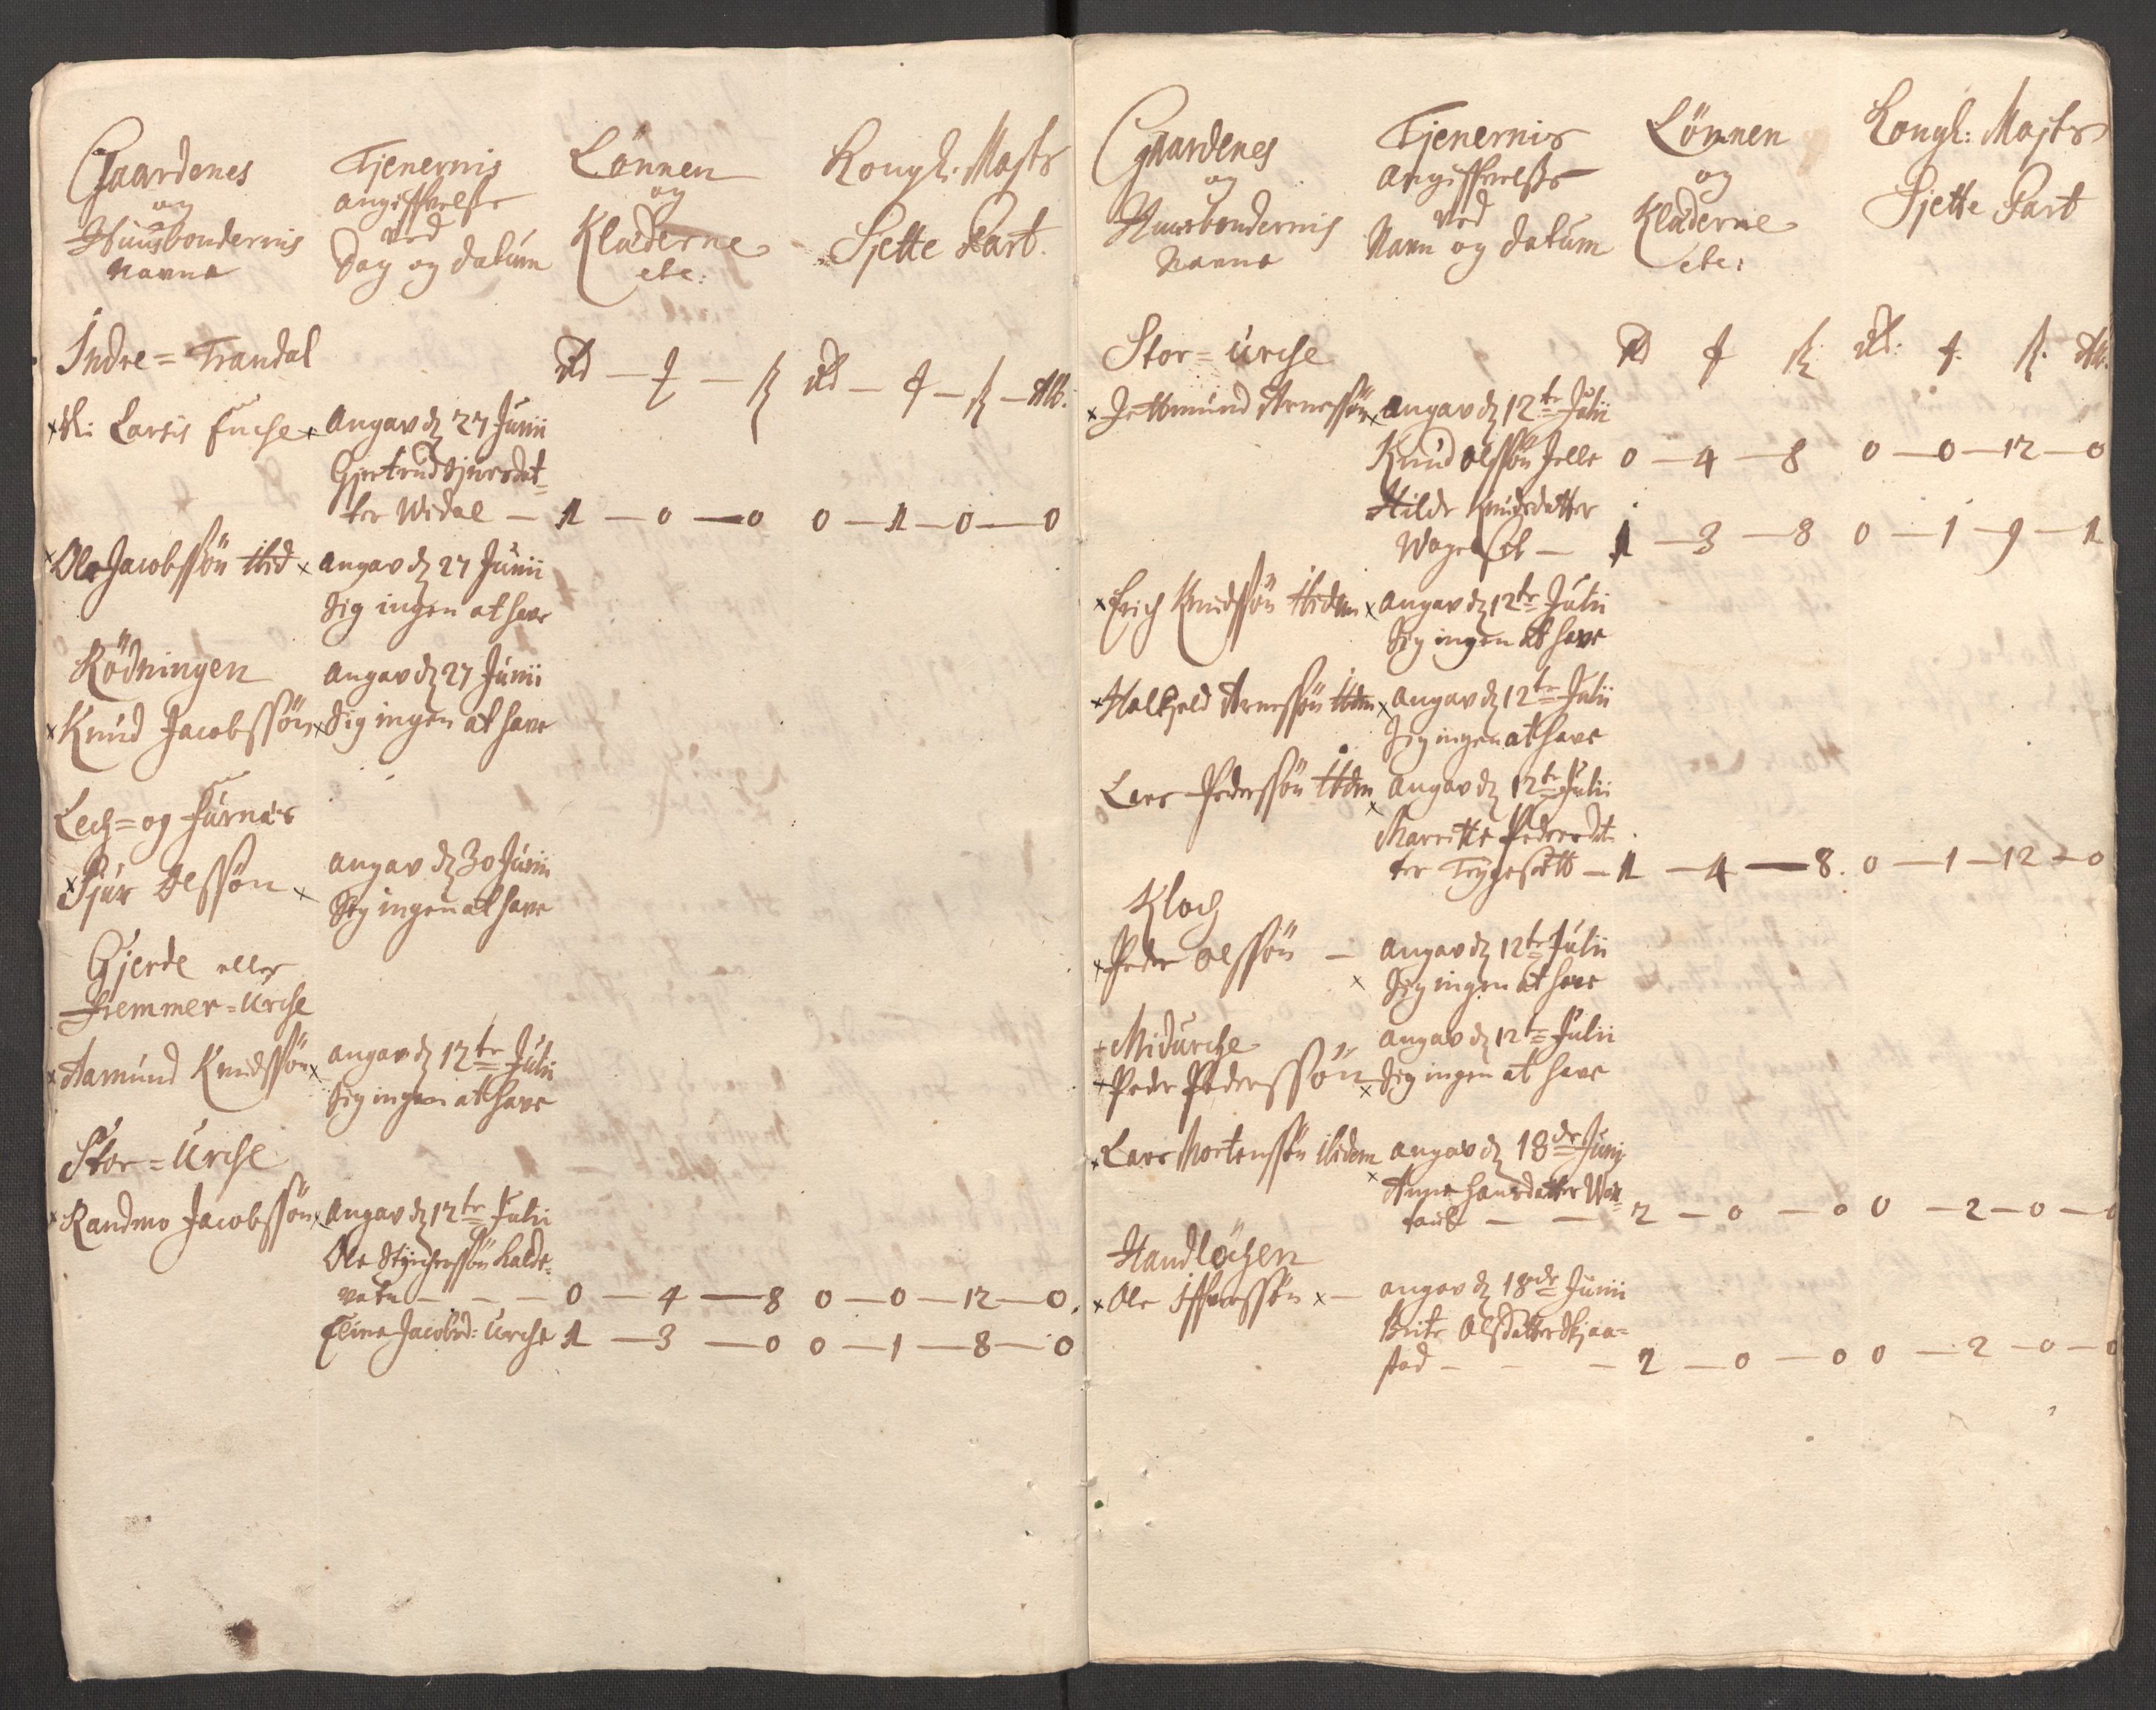 Gaardenes
og
Huusbondernis
Navne
Tjenernis
angiffvelse
ved
Dag og datum
Lönnen
og
Klæderne
etc:
Kongl: Maȷts
Sjette Part.
Indre = Trandal
Rd — ₰ — ß Rd — ₰ — ß — Alb.
Sl: Larsis Enche angav d. 27 Junii
Gjertrud Sjursdat-
ter Widal — 1 — 0 — 0 0 — 1 — 0 — 0
Ole Jacobssön Ibid angav d. 27 Junii
Sig ingen at have
Rödningen angav d. 27 Junii
Knud Jacobssön Sig ingen at have
Lech = og Furnæs
Sjur Olssön angav d. 30 Junii
Sig ingen at have
Gjerde eller
Fremmer = Urche
Aamund Knudssön angav d. 12te Julii
Sig ingen at have
Stor = Urche
Randmo Jacobssön angav d. 12te Julii
Ole
vatn — — — 0 — 4 — 8 0 — 0 — 12 — 0.
Eline Jacobsd: Urche 1 — 3 — 0 0 — 1 — 8 — 0
Gaardenes
og
Huusbondernis
Navne
Tjenernis
Angiffvelse
ved
Navn og datum
Lönnen
og
Klæderne
etc:
Kongl: Maȷts
Sjette Part
Stor = Urche Rd ₰ ß Rd: ₰. ß. Alb.
Jettmund Arnessön angav d. 12te Julii
Knud Olssön Jelle 0 — 4 — 8 0 — 0 — 12 — 0
Hilde Knudsdatter
— 1 — 3 — 8 0 — 1 — 9 — 1
Erich Knudssön Ibidm angav d. 12te Julii
Sig ingen at have
Halkjeld Arnessön Ibdm angav d. 12te Julii
Sig ingen at have
Lars Pederssön Ibdm angav d. 12te Julii
Marritte Pedersdt-
ter — 1 — 4 — 8. 0 — 1 — 12 — 0
Kloch
Peder Olssön — angav d. 12te Julii
Sig ingen at have
Midurche angav d. 12te Julii
Peder Pederssön Sig ingen at have
Lars Mortenssön Ibidem angav d. 18de Junij
Anne Hansdatter
— — 2 — 0 — 0 0 — 2 — 0 — 0
Handlöchen
Ole Iffverssön — angav d. 18de Junii
Brite Olsdatter Skjaa=
stad — — 2 — 0 — 0 0 — 2 — 0 — 0